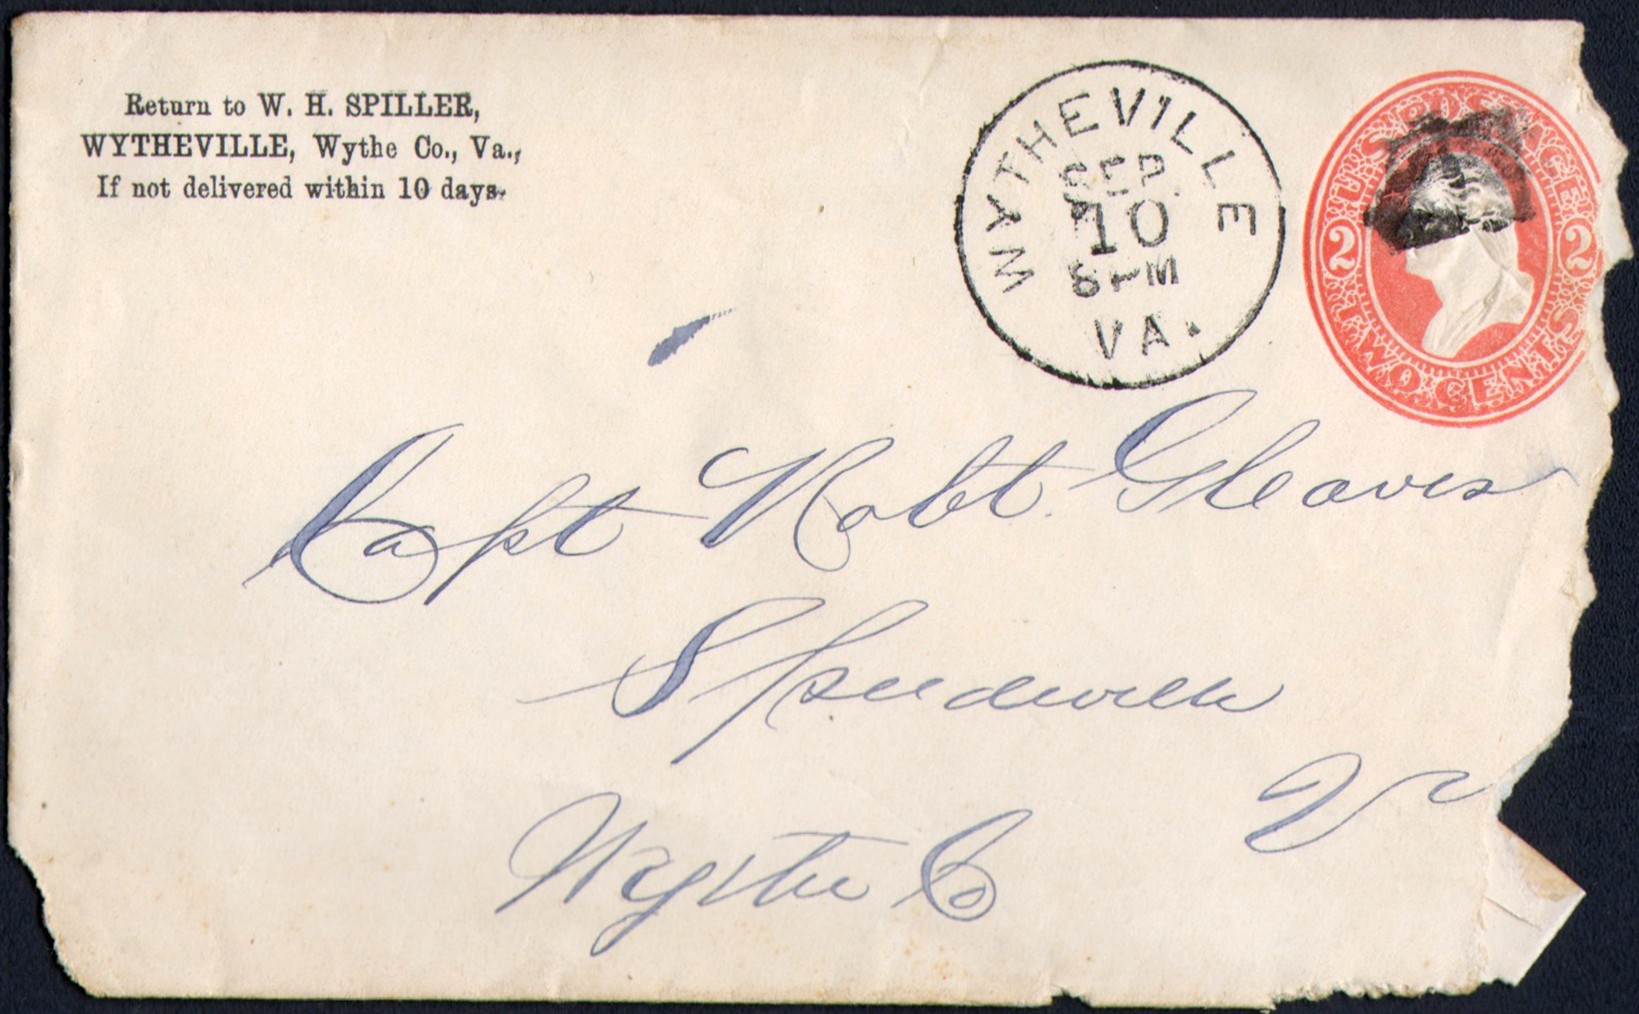 Return to W. H. SPILLER,
WYTHEVILLE, Wythe Co., Va.,
If not delivered within 10 days.
WYTHEVILLE
SEP
10
VA.
U.S. POSTAGE
2 2
TWO CENTS
Capt Robt. Gleaves
Speedwell
Wythe Co
V